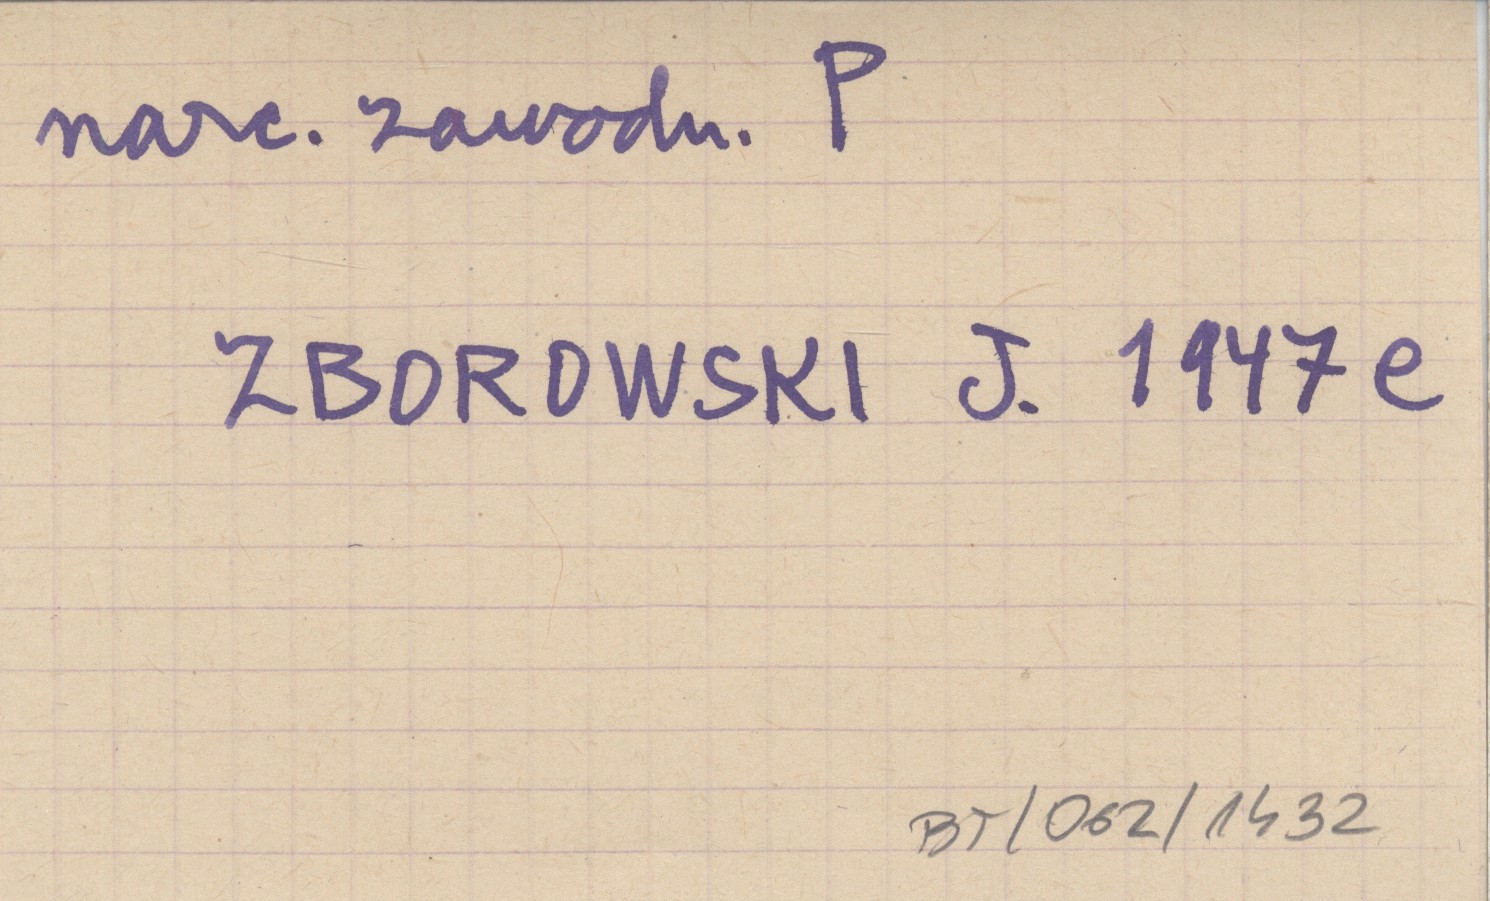 narc. zawodn. P
ZBOROWSKI J. 1947 e
BT/062/1432